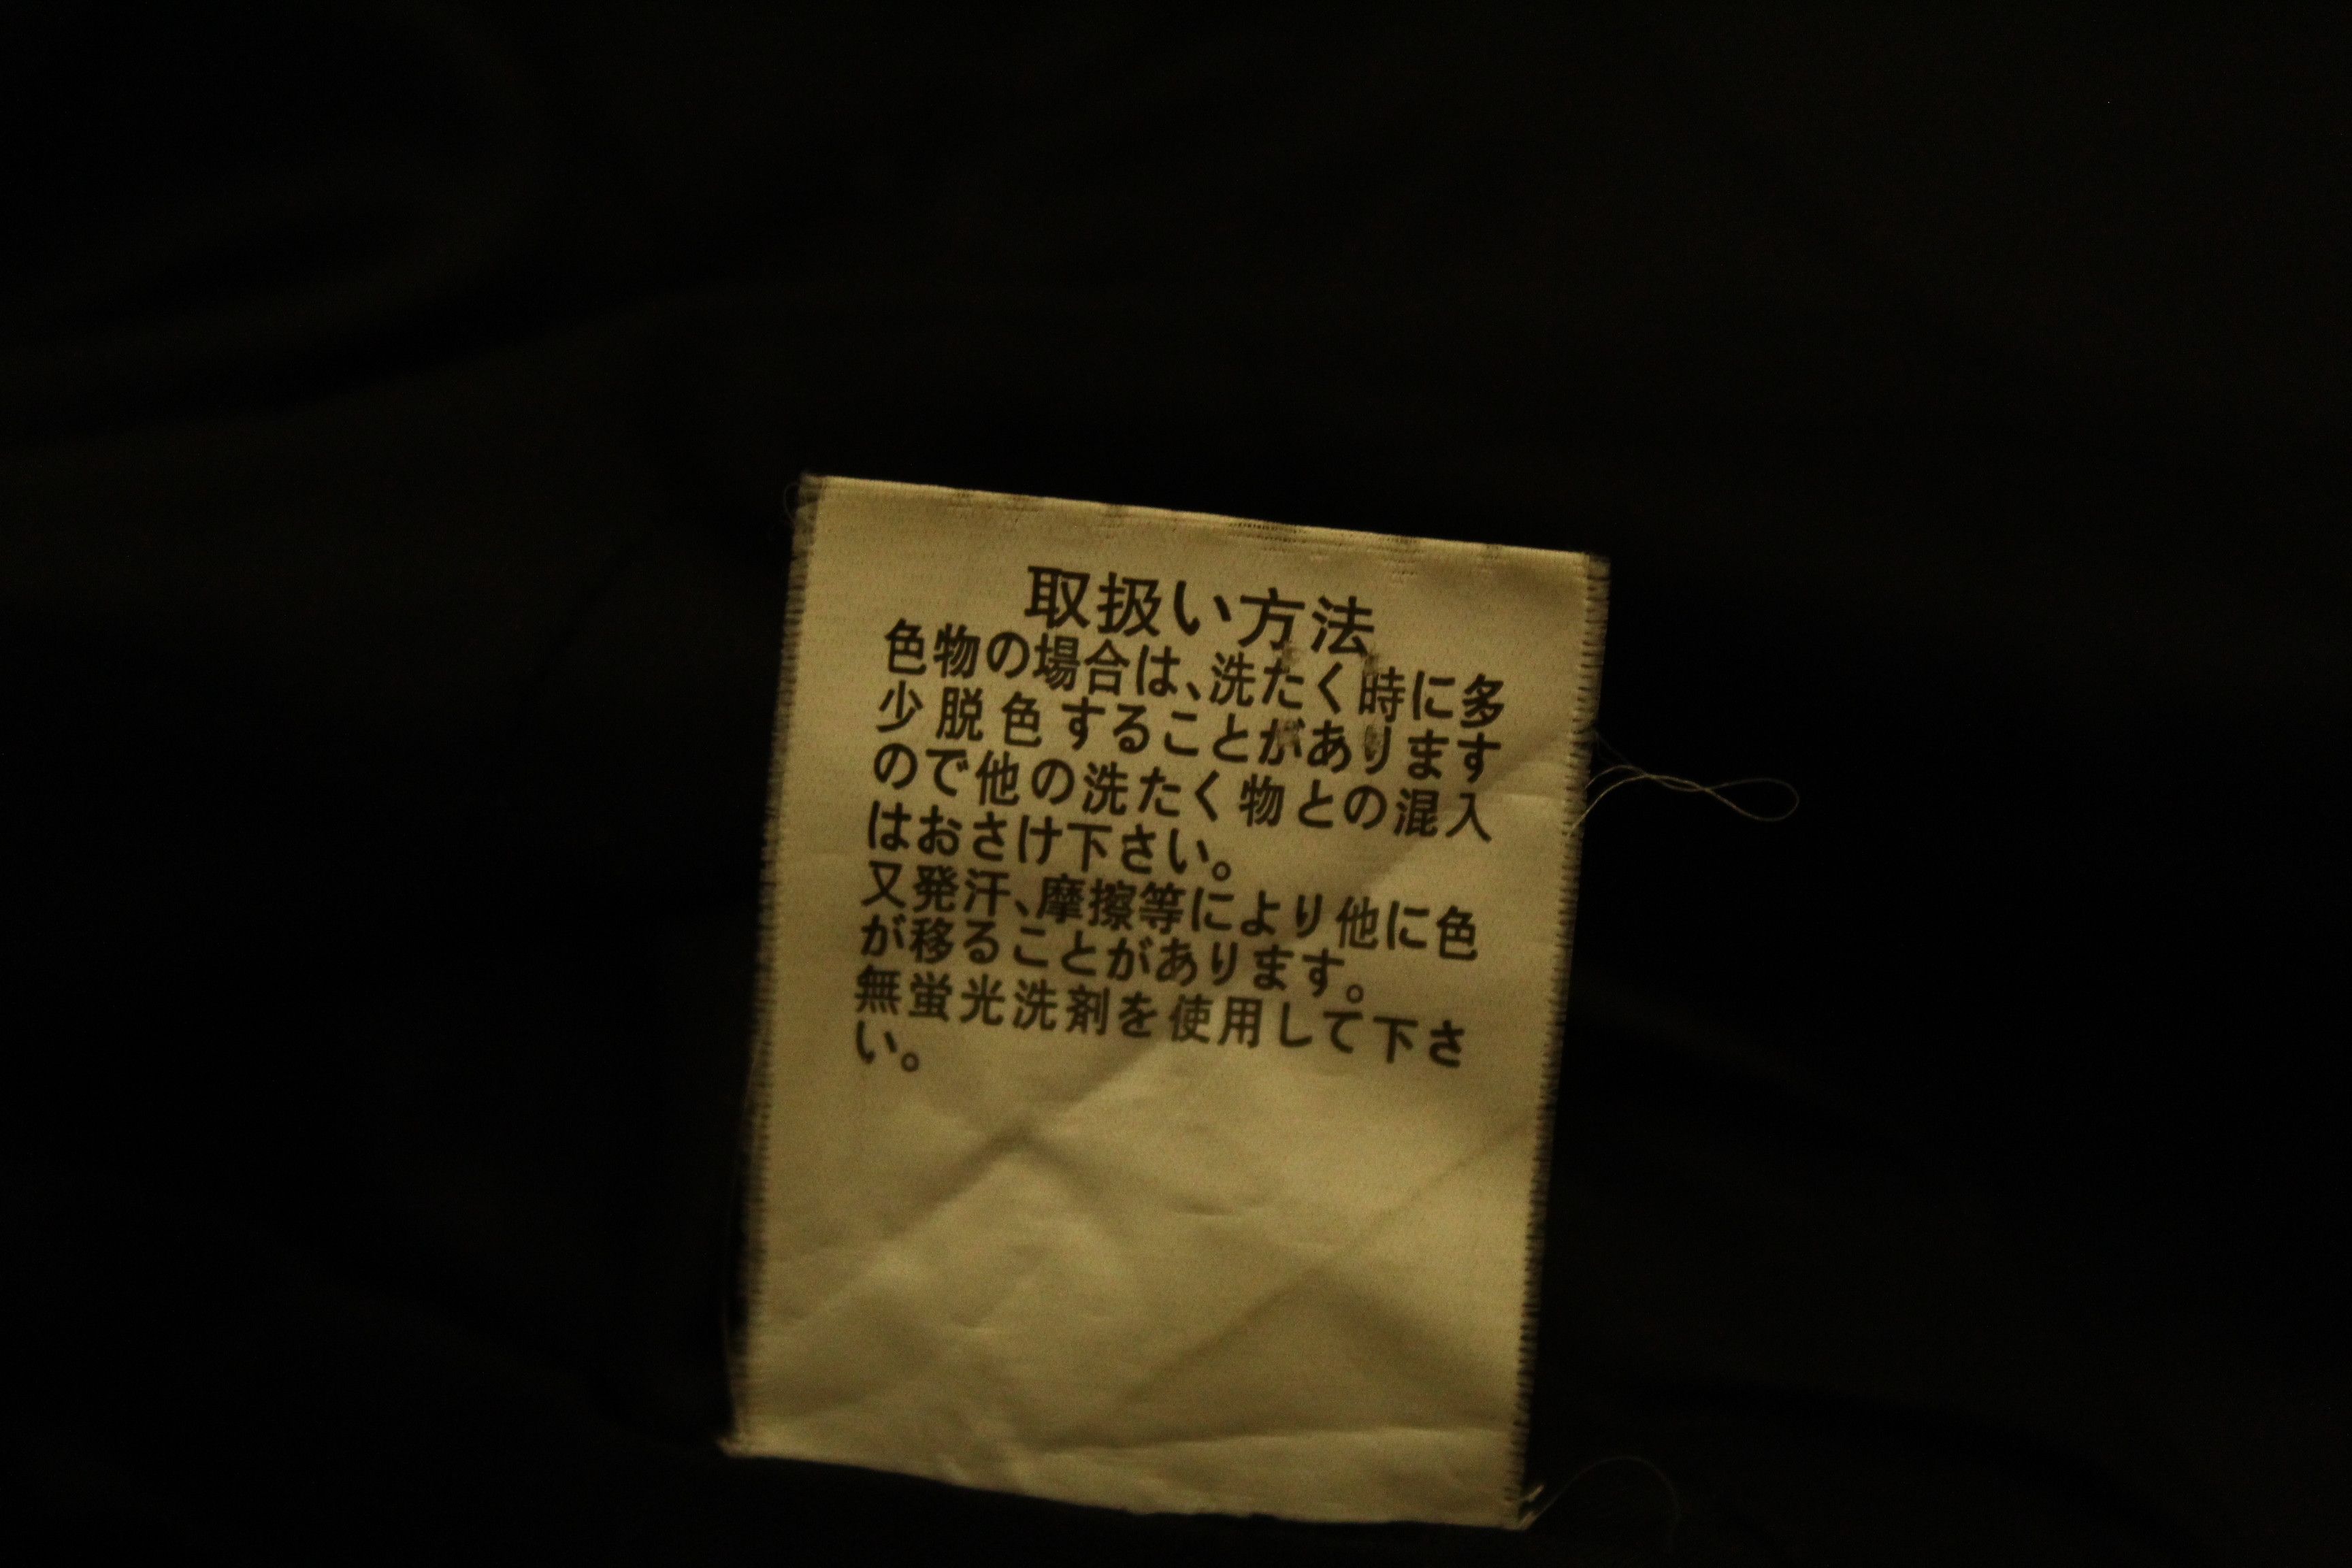 取扱い方法
色物の場合は、洗たく時に多
少脱色することがあります
ので他の洗たく物との混入
はおさけ下さい。
又発汗、摩擦等により他に色
が移ることがあります。
無蛍光洗剤を使用して下さ
い。